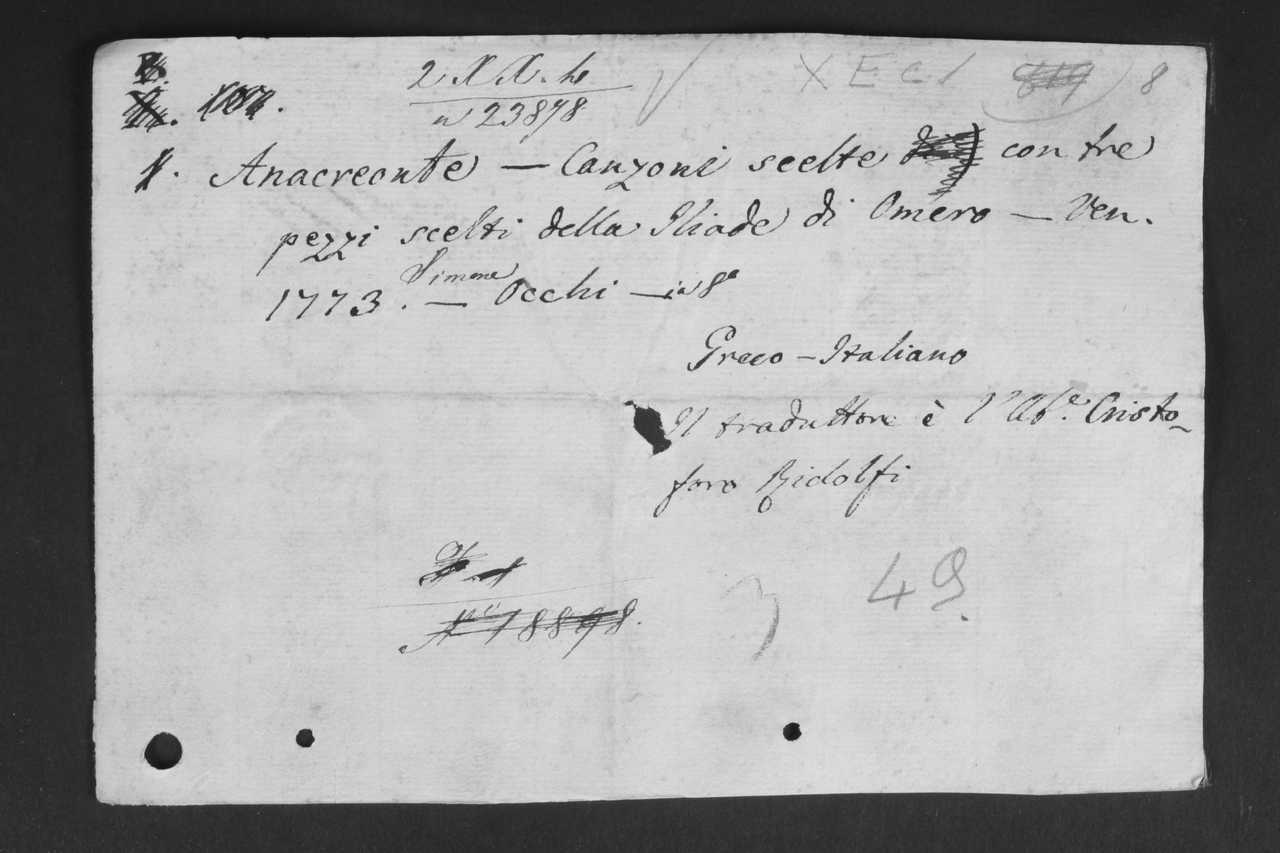 2 X X. h
X E C 1
8
n 23878
Anacreonte — Canzoni scelte con tre
pezzi scelti della Iliade di Omero — Ven.
1773. — Simone Occhi — in 8°
Greco — Italiano
Il traduttore è l'Ab.e Cristo-
foro Ridolfi
49.